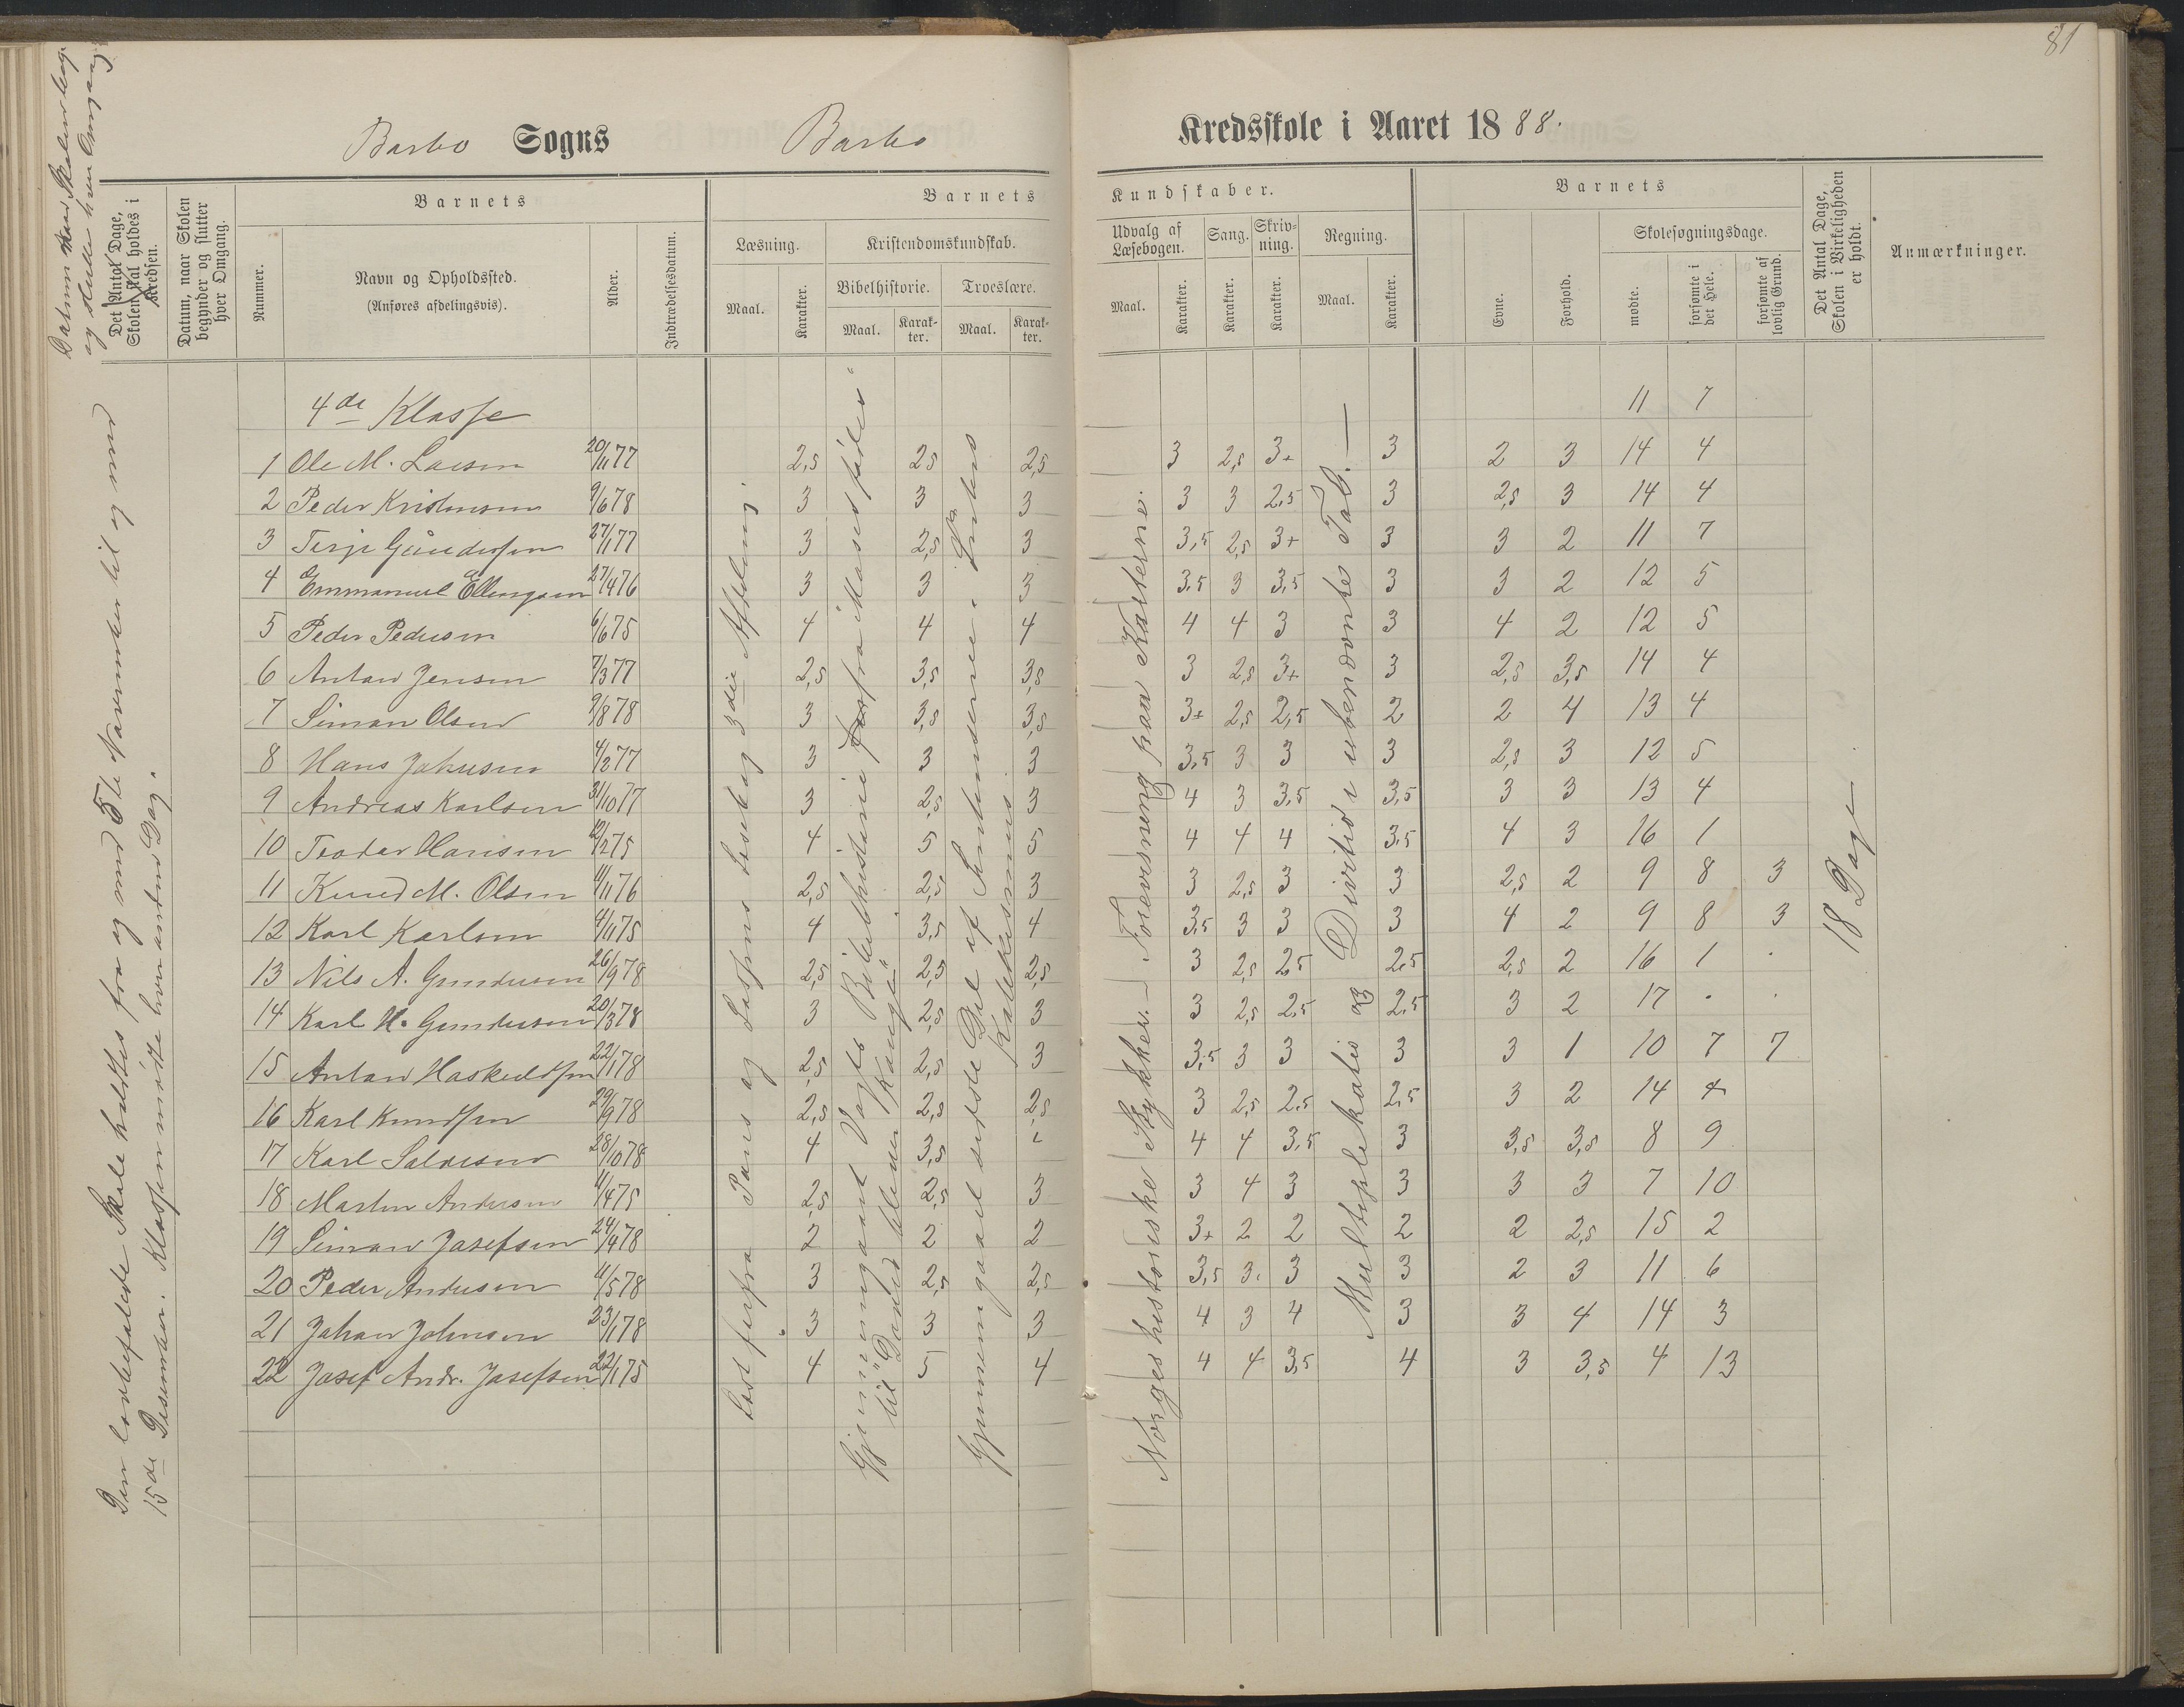 81
Barbo Sogns Barbo Kredsskole i Aaret 1888.
og slutter hver Omgang
Det Antal Dage, Skolen skal holdes i Kredsen.
Datum, naar Skolen begynder og slutter hver Omgang.
Barnets
Nummer.
Navn og Opholdssted.
(Anføres afdelingsvis).
Alder.
Indtrædelsesdatum.
Barnets Kundskaber.
Læsning.
Maal.
Karakter.
Kristendomskundskab.
Bibelhistorie.
Maal.
Karakter.
Troeslære.
Maal.
Karakter.
Udvalg af Læsebogen.
Maal.
Karakter.
Sang.
Karakter.
Skrivning.
Karakter.
Regning.
Maal.
Karakter.
Barnets
Evne.
Forhold.
Skolesøgningsdage.
mødte.
forsømte i det Hele.
forsømte af lovlig Grund.
Det Antal Dage, Skolen i Virkeligheden er holdt.
Anmærkninger.
4de Klasse 11 7
1 Ole M. Larsen 20/11 77 2,5 2,5 2,5 3 2,5 3+ 3 2 3 14 4
2 Peder Kristensen 9/6 78 3 3 3 3 3 2,5 3 2,5 3 14 4
3 Terje Gundersen 27/1 77 3 2,5 3 3,5 2,5 3+ 3 3 2 11 7
4 Emmanuel Ellingsen 27/4 76 3 3 3 3,5 3 3,5 3 3 2 12 5
5 Peder Pedersen 6/6 75 4 4 4 4 4 3 3 4 2 12 5
6 Anton Jensen 7/3 77 2,5 3,5 3,5 3 2,5 3+ 3 2,5 3,5 14 4
7 Simon Olsen 9/8 78 3 3,5 3,5 3+ 2,5 2,5 2 2 4 13 4
8 Hans Johnsen 4/2 77 3 3 3 3,5 3 3 3 2,5 3 12 5
9 Andreas Karlsen 31/10 77 3 2,5 3 4 3 3,5 3,5 3 3 13 4
10 Teodor Hansen 12/2 75 4 5 5 4 4 4 3,5 4 3 16 1
11 Knud M. Olsen 11/11 76 2,5 2,5 3 3 2,5 3 3 2,5 2 9 8 3
12 Karl Karlsen 4/11 75 4 3,5 4 3,5 3 3 3 4 2 9 8 3
13 Nils A. Gundersen 26/9 78 2,5 2,5 2,5 3 2,5 2,5 2,5 2,5 2 16 1 .
14 Karl H. Gundersen 20/3 78 3 2,5 3 3 2,5 2,5 2,5 3 2 17 . .
15 Anton Haskeldsen 22/1 78 2,5 2,5 3 3,5 3 3 3 3 1 10 7 7
16 Karl Knudsen 29/9 78 2,5 2,5 2,5 3 2,5 2,5 2,5 3 2 14 4
17 Karl Salvesen 28/10 78 4 3,5 4 4 3,5 3 3,5 3,5 8 9
18 Martin Andersen 11/4 75 2,5 2,5 3 3 4 3 3 3 3 7 10
19 Simon Josefsen 24/4 78 2 2 2 3+ 2 2 2 2 2,5 15 2
20 Peder Andersen 11/5 78 3 2,5 2,5 3,5 3. 3 3 2 3 11 6
21 Johan Johnsen 23/1 78 3 3 3 4 3 4 3 3 4 14 3
22 Josef Andr. Josefsen 22/1 75 4 5 4 4 4 3,5 4 3 3,5 4 13
Den lovbefalede Skole holdtes fra og med 5te November til og med
15de Desember. Klassen mødte hver anden Dag.
Læst forfra Pauss og Lassens Læsebog 3die Afdeling.
Gjennemgaaet Vogts Bibelhistorie fra "Moses' fødsel"
til "David bliver Konge"
Gjennemgaaet sidste Del af Sententserne i Luthers
Katekismus
Norges historiske Stykker. Forevisning paa Kartene.
Multiplikation og Division i ubenævnte Tal. —
18 Dage